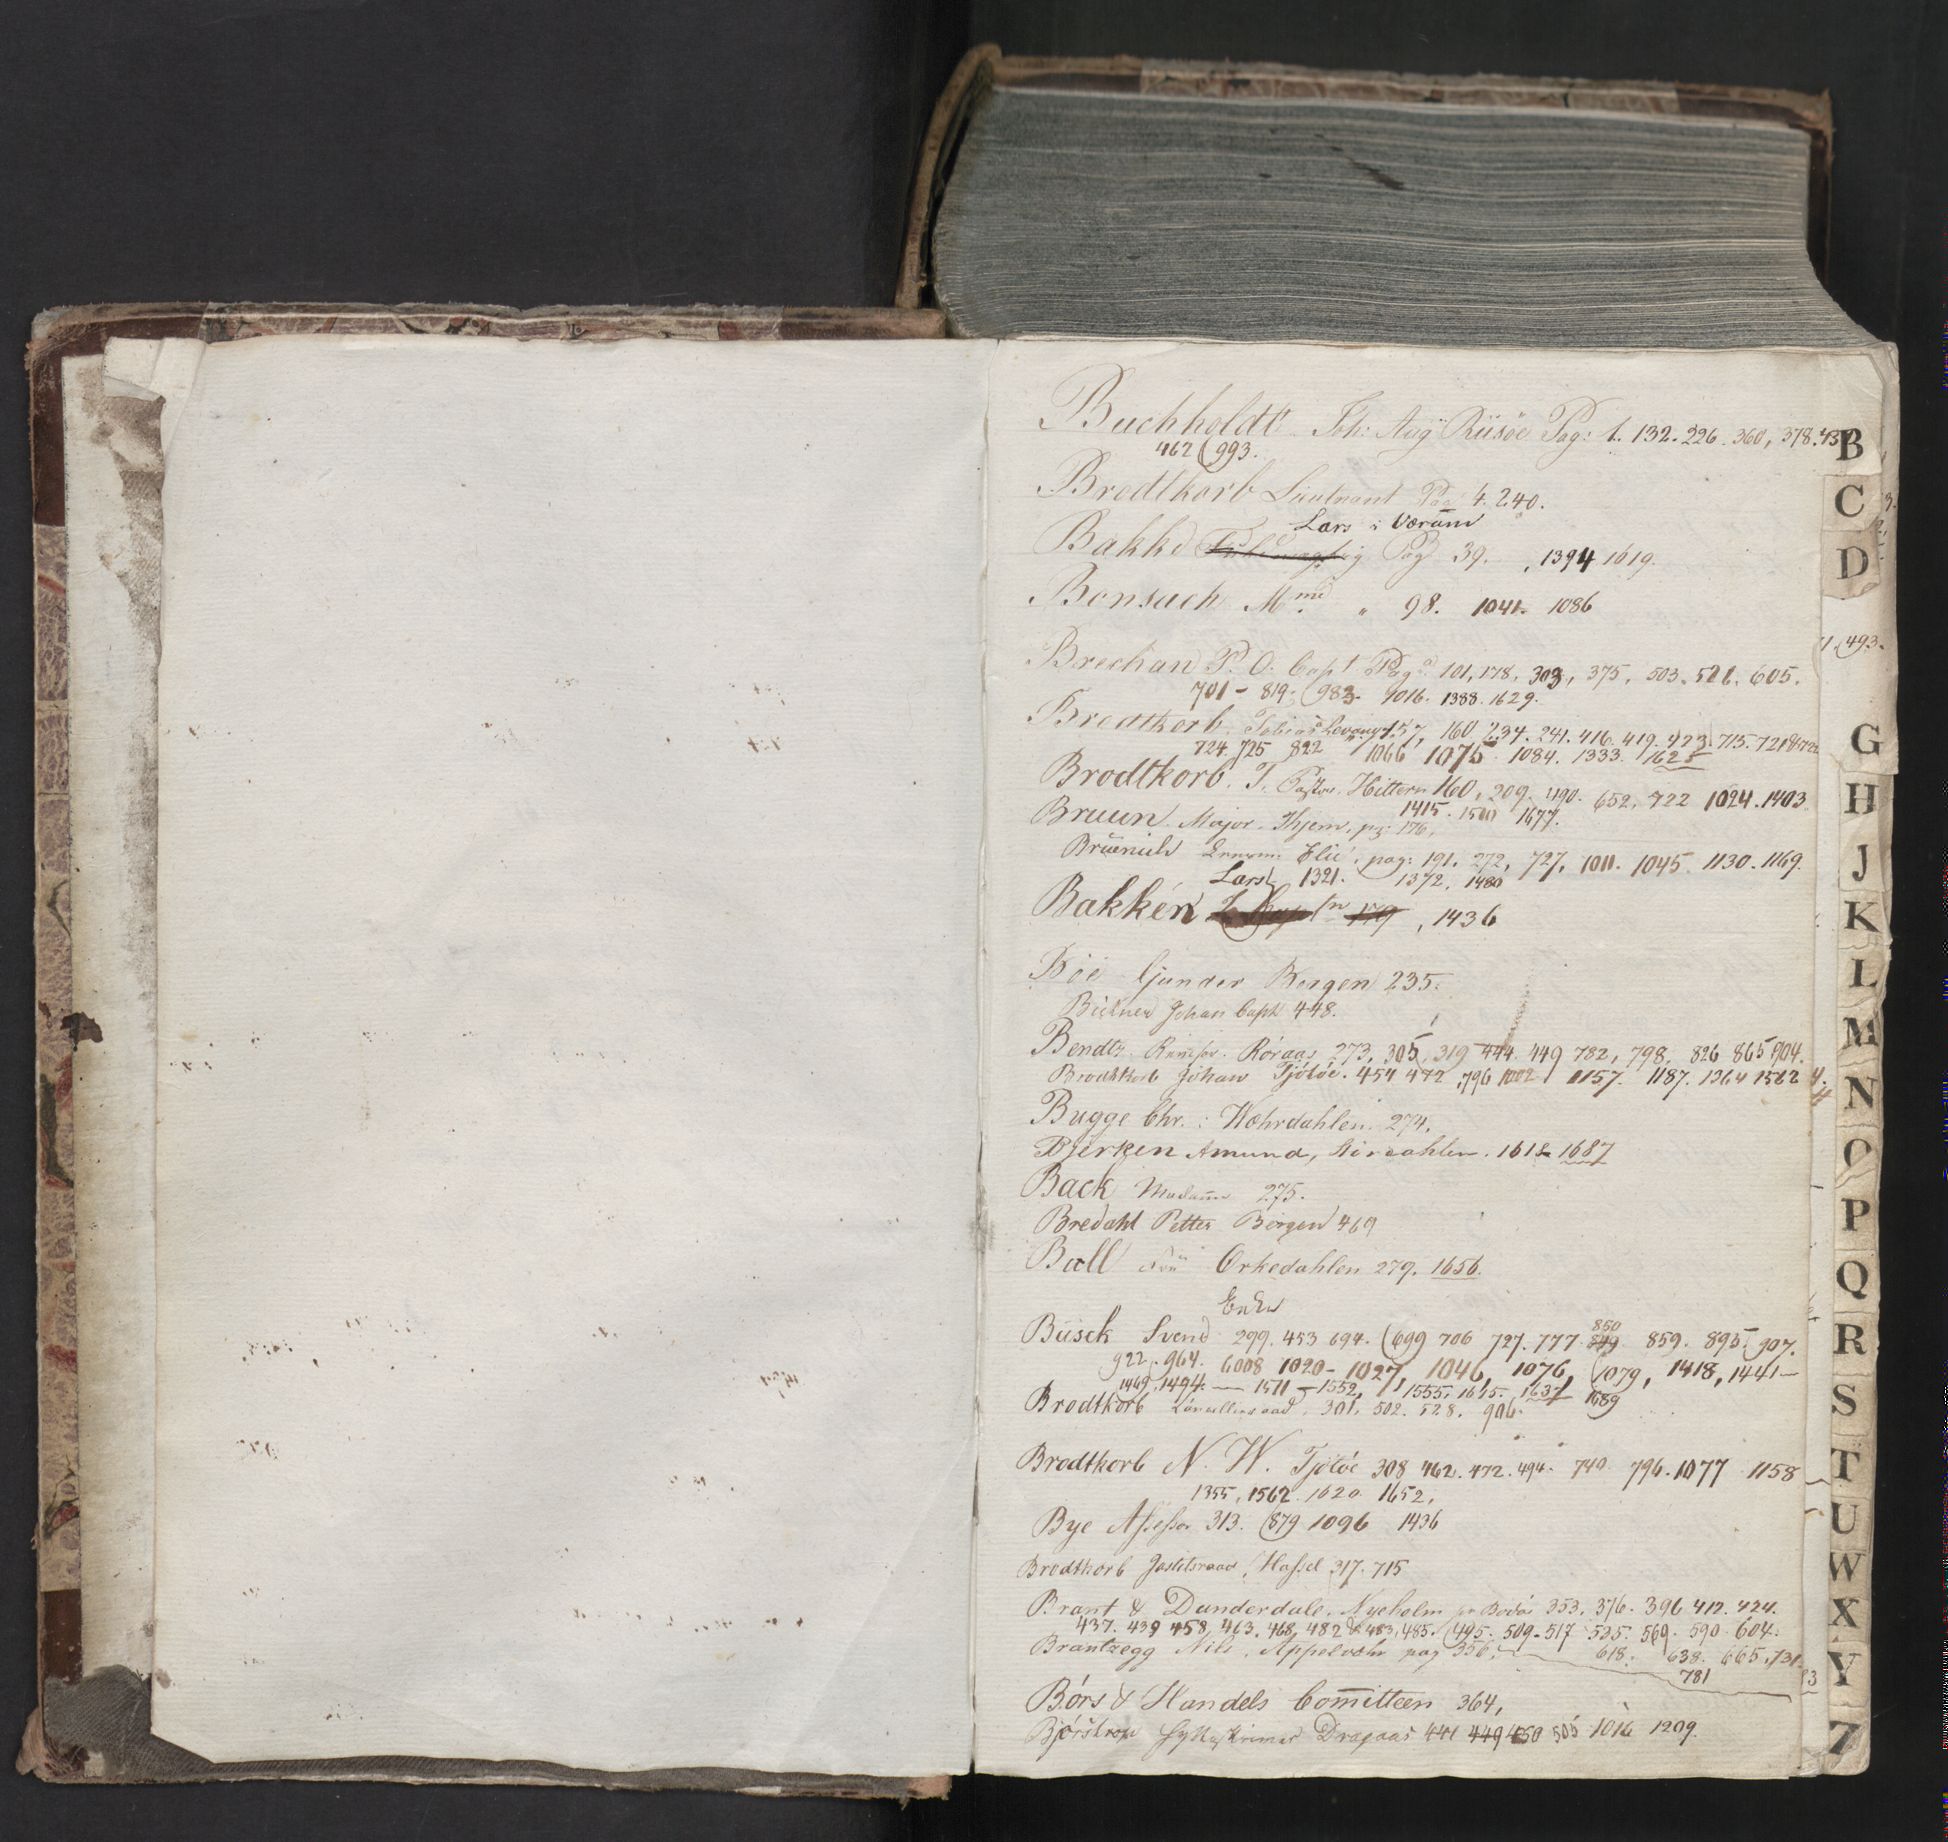 Buchholdt Joh: Aug Riisöe Pag: 1. 132. 226. 360, 378.
462 993.
Brodtkorb Lieutnant Pag 4. 240.
Lars i Værum
Bakke Pag 39. , 1394 1619.
Bonsach M:me " 98. 1041. 1086
Brechan P. O. Capt Pag: 101, 178, 303, 375, 503. 521. 605.
701 - 819. 983. 1016. 1388. 1629.
Brodtkorb. Tobias Levang 157, 160 234. 241. 416. 419. 423 715. 721
724. 725 822 1066 1075 1084. 1333. 1625
Brodtkorb. T. Pastor. Hittern 160, 209. 490. 652. 722 1024. 1403
1415. 1500 1677.
Bruun. Major. Thjem. pg: 176,
Brüenich pag: 191. 272, 727, 1011. 1045. 1130. 1169.
Lars 1321. 1372, 1480
Bakken 179 , 1436
Böe Gunder Bergen 235.
Bütner Johan Capt 448.
Bendtz. Röraas 273, 305, 319 444 449 782, 798, 826 865 904.
Brodtkorb Johan Tjötöe. 454 472 796 1002 1157. 1187. 1364 1562
Bugge Chr. : Wæhrdahlen. 274.
Bjerken Amund, Stördahlen. 1618 1687
Back Madame 275.
Bredahl Petter Bergen 469
Ball Fru Orkedahlen 279. 1656.
Enke
Büsck Svend 299. 453 694. 699 706 727. 777 849 850 859. 895 907.
922. 964. 1008 1020 - 1027, 1046, 1076, 1079, 1418, 1441 -
1469. 1494. — 1511 - 1552, 1555. 1615. 1637 1689
Brodtkorb Cancelliraad. 301, 502. 528. 906.
Brodtkorb N. W. Tjötöe 308 462. 472. 494. 740 796. 1077 1158
1355, 1562. 1620. 1652,
Bye Assessor 313. 879 1096 1436
Brodtkorb Justitsraad, Hassel 317. 715
Brant & Dunderdale. Nyeholm pr Bodöe 353, 376. 396 412. 424.
437. 439 458, 463. 468, 482 & 483, 485. 495. 509. 517 525. 569. 590. 604.
Brantzegg Nils, Appelvær pag 356, 618. 638. 665, 731
781
Börs & Handels Committeen 364,
Björstrop Dragaas 441 449 450 505 1016 1209.
B
C
D
493.
G
H
J
K
L
M
N
O
P
Q
R
S
T
U
W
X
Y
Z